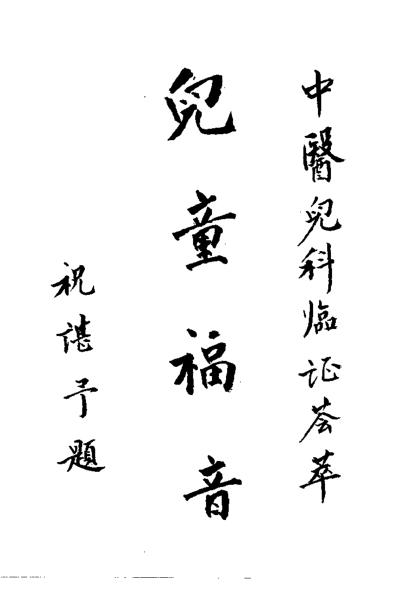 中醫兒科臨证荟萃
兒童福音
祝諶予題